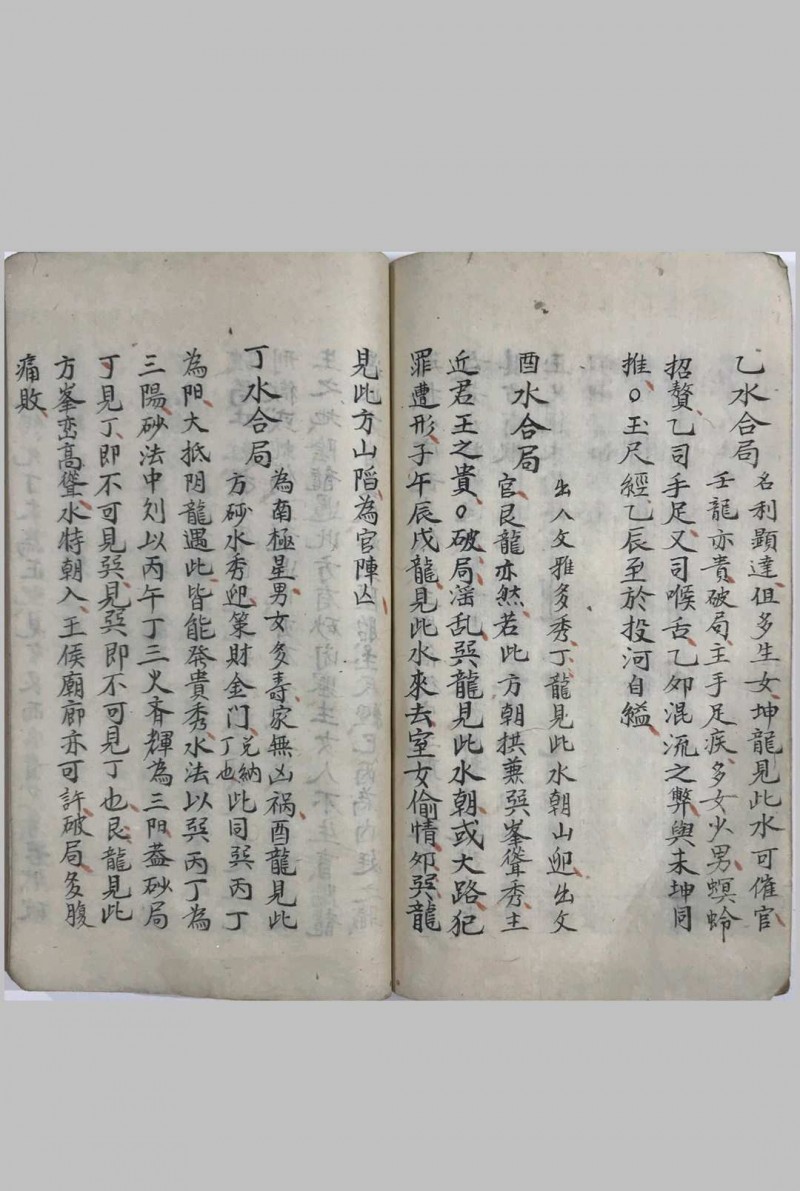 乙水合局
名利顯達、但多生女、坤龍見此水可催官、
壬龍亦貴、破局、主手足疾、多女少男、螟蛉
招贅、乙司手足、又司喉舌、乙夘混流之弊、與未坤同
推、○玉尺經、乙辰至於投河自縊、
酉水合局
出人文雅多秀、丁龍見此水朝山迎、出文
官、艮龍亦然、若此方朝拱兼巽峯聳秀、主
近君王之貴、○破局、滛乱、巽龍見此水朝、或大路、犯
罪遭形、子午辰戌龍、見此水來去、室女偷情、夘巽龍
見此方山陷、為官陣凶、
丁水合局
為南極星、男女多壽、家無凶禍、酉龍見此
方砂水秀迎、策財金門、兊納丁也此同巽丙丁
為阳、大抵阴龍遇此、皆能發貴秀、水法以巽丙丁為
三陽、砂法中则以丙午丁三火齐輝為三阳、盖砂局
丁見丁、即不可見巽、見巽即不可見丁也、艮龍見此
方峯峦高聳、水特朝入、王侯廟廊亦可許、破局、多腹
痛敗、